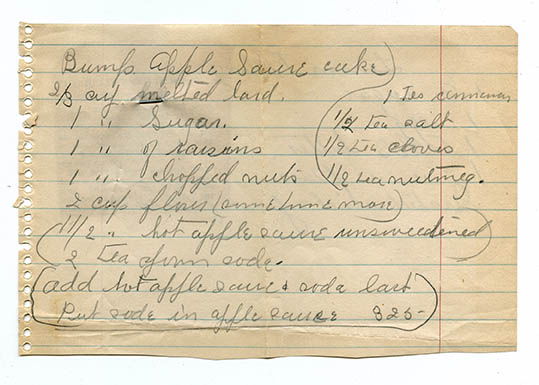 Bump Apple Sauce cake
2/3 cup melted lard.
1 " Sugar.
1 " of raisins
1 " chopped nuts
1 Tea cinnamon
1/2 tea salt
1/2 tea cloves
1/2 tea nutmeg.
2 cup flour (sometime more)
1 1/2 " hot apple sauce unsweetened
2 Tea spoon soda.
add hot apple sauce & soda last
Put soda in apple sauce 325-